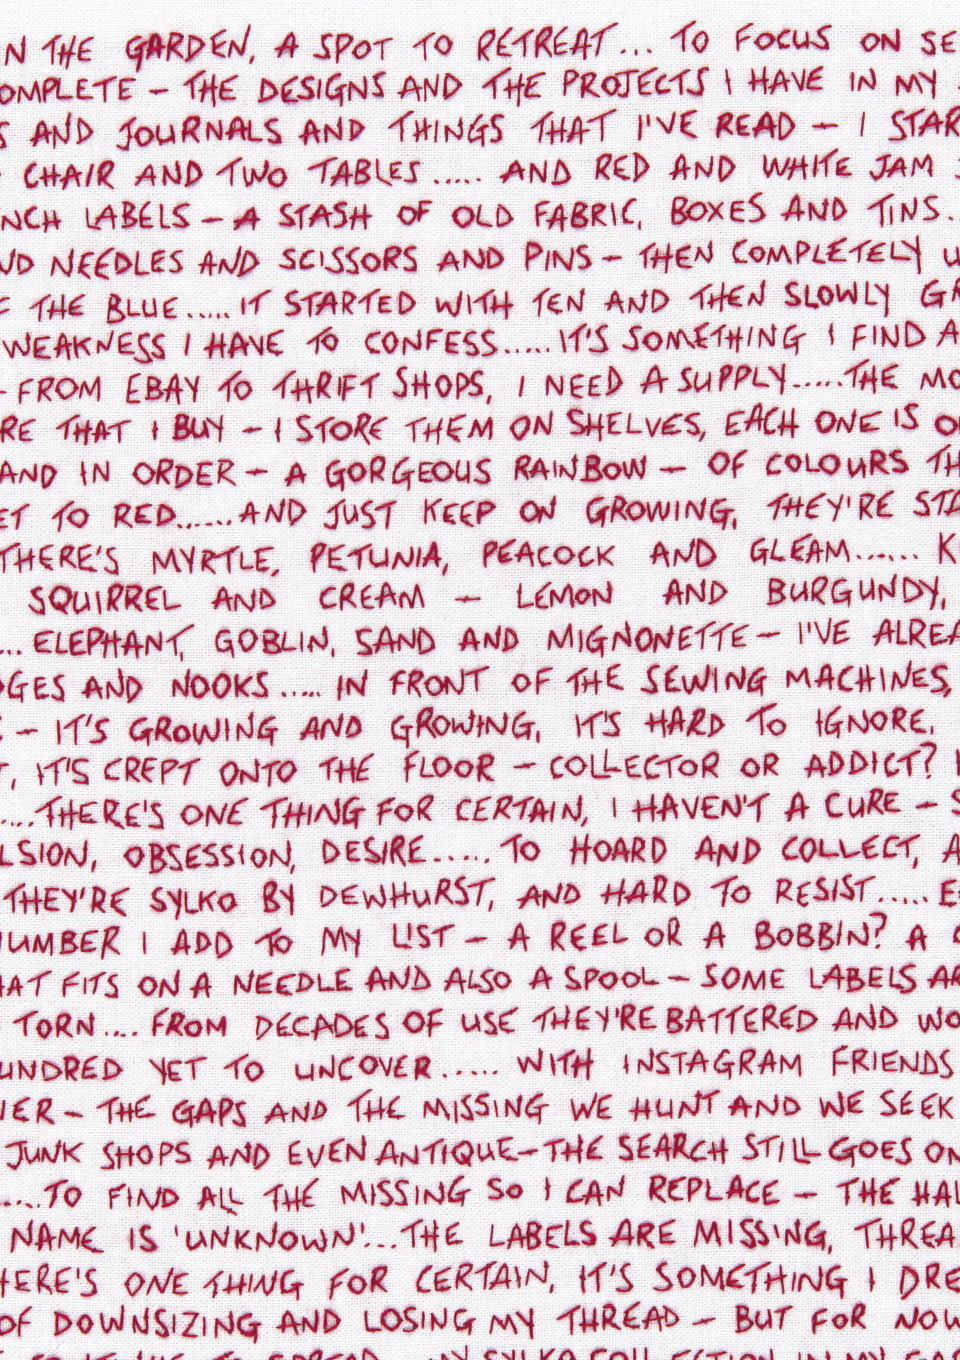 IN THE GARDEN, A SPOT TO RETREAT... TO FOCUS ON SE
OMPLETE – THE DESIGNS AND THE PROJECTS I HAVE IN MY
S AND JOURNALS AND THINGS THAT I'VE READ – I STAR
CHAIR AND TWO TABLES..... AND RED AND WHITE JAM J
NCH LABELS – A STASH OF OLD FABRIC, BOXES AND TINS..
ND NEEDLES AND SCISSORS AND PINS – THEN COMPLETELY U
F THE BLUE..... IT STARTED WITH TEN AND THEN SLOWLY GR
WEAKNESS I HAVE TO CONFESS..... IT'S SOMETHING I FIND A
– FROM EBAY TO THRIFT SHOPS, I NEED A SUPPLY..... THE MO
RE THAT I BUY – I STORE THEM ON SHELVES, EACH ONE IS O
AND IN ORDER – A GORGEOUS RAINBOW – OF COLOURS TH
ET TO RED...... AND JUST KEEP ON GROWING, THEY'RE STA
THERE'S MYRTLE, PETUNIA, PEACOCK AND GLEAM...... K
SQUIRREL AND CREAM – LEMON AND BURGUNDY,
... ELEPHANT, GOBLIN, SAND AND MIGNONETTE – I'VE ALREA
DGES AND NOOKS..... IN FRONT OF THE SEWING MACHINES,
– IT'S GROWING AND GROWING, IT'S HARD TO IGNORE,
T, IT'S CREPT ONTO THE FLOOR – COLLECTOR OR ADDICT? I
.... THERE'S ONE THING FOR CERTAIN, I HAVEN'T A CURE – S
LSION, OBSESSION, DESIRE...... TO HOARD AND COLLECT, A
THEY'RE SYLKO BY DEWHURST, AND HARD TO RESIST..... E
NUMBER I ADD TO MY LIST – A REEL OR A BOBBIN? A C
HAT FITS ON A NEEDLE AND ALSO A SPOOL – SOME LABELS AR
TORN.... FROM DECADES OF USE THEY'RE BATTERED AND WO
UNDRED YET TO UNCOVER..... WITH INSTAGRAM FRIENDS
VER – THE GAPS AND THE MISSING WE HUNT AND WE SEEK
JUNK SHOPS AND EVEN ANTIQUE – THE SEARCH STILL GOES ON
.....TO FIND ALL THE MISSING SO I CAN REPLACE – THE HAL
NAME IS 'UNKNOWN'... THE LABELS ARE MISSING, THREA
HERE'S ONE THING FOR CERTAIN, IT'S SOMETHING I DRE
OF DOWNSIZING AND LOSING MY THREAD – BUT FOR NOW
TO SPREAD MY SYLKO COLLECTION IN MY